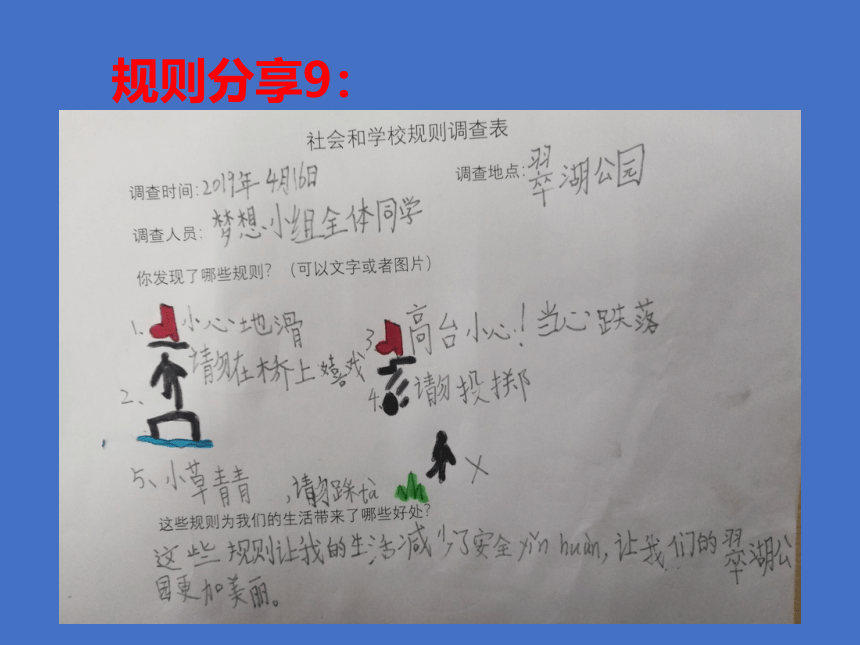 规则分享9：
社会和学校规则调查表
调查时间：2019年4月16日
调查地点：翠湖公园
调查人员：梦想小组全体同学
你发现了哪些规则？（可以文字或者图片）
1、小心地滑
3、高台小心！当心跌落
2、请勿在桥上嬉戏
4、请勿投掷
5、小草青青，请勿踩tà
这些规则为我们的生活带来了哪些好处？
这些规则让我的生活减少了安全yǐn huàn，让我们的翠湖公
园更加美丽。